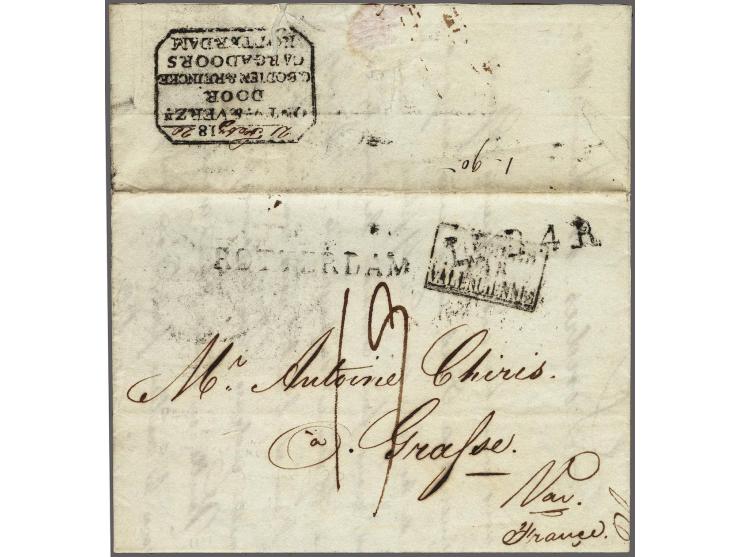 21 1820
ONTV. & VERZN
DOOR
G. BODIEN & REIJNCKE
CARGADOORS
ROTTERDAM
1-90
ROTTERDAM
L.P.B.4.R.
PAR
VALENCIENNES
13
Mr. Antoine Chiris.
à Grasse.
Var.
France.